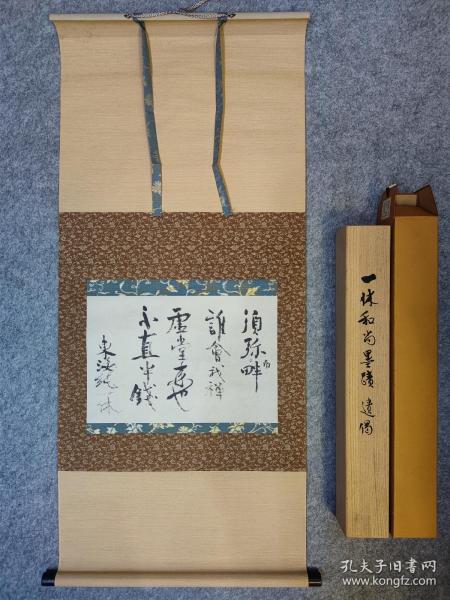 須弥南畔
誰會我禅
虚堂来也
不直半銭
東海純一休
一休和尚墨蹟 遺偈
孔夫子旧书网
www.kongfz.com